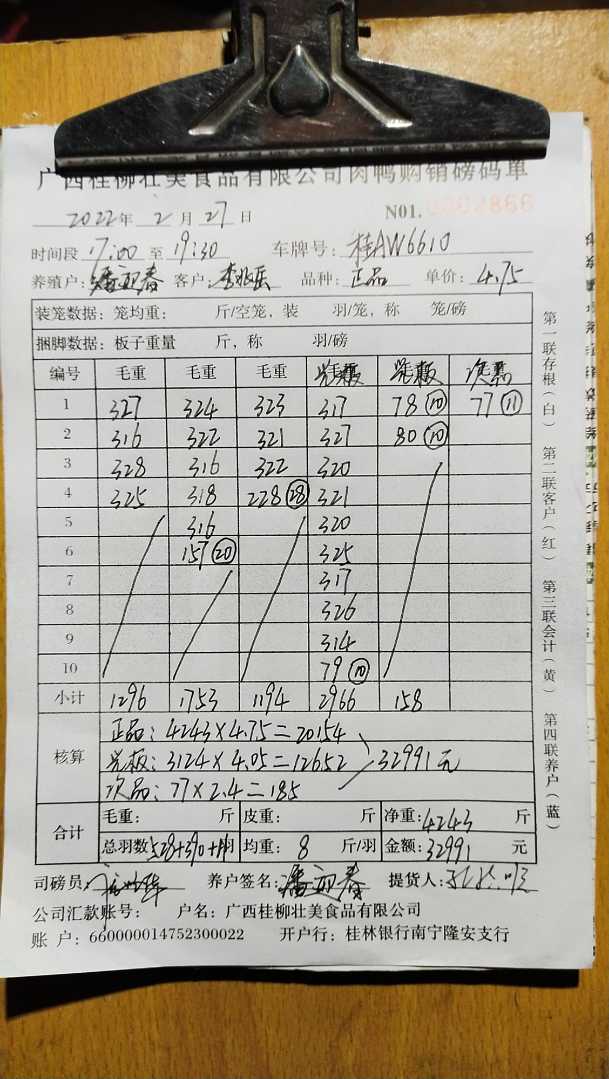 广西桂柳壮美食品有限公司肉鸭购销磅码单
2022年 2月27日 N01.
时间段 17:00 至 19:30 车牌号: 桂AW6610
养殖户: 潘迎春 客户: 品种: 正品 单价: 4.75
装笼数据: 笼均重: 斤/空笼, 装 羽/笼, 称 笼/磅
捆脚数据: 板子重量 斤, 称 羽/磅
编号 毛重 毛重 毛重
1 327 324 323 317 78 ⑩ 77 ⑪
2 316 322 321 327 80 ⑩
3 328 316 322 320
4 325 318 228 ㉘ 321
5 316 320
6 157 ⑳ 325
7 317
8 326
9 314
10 79 ⑩
小计 1296 1753 1194 2966 158
正品: 4243×4.75=20154
核算 3124×4.05=12652 32991元
次品: 77×2.4=185
合计 毛重: 斤 皮重: 斤 净重: 4243 斤
总羽数 528+390+11羽 均重: 8 斤/羽 金额: 32991 元
司磅员: 养户签名: 潘迎春 提货人:
公司汇款账号: 户名: 广西桂柳壮美食品有限公司
账 户: 660000014752300022 开户行: 桂林银行南宁隆安支行
第一联存根(白) 第二联客户(红) 第三联会计(黄) 第四联养户(蓝)